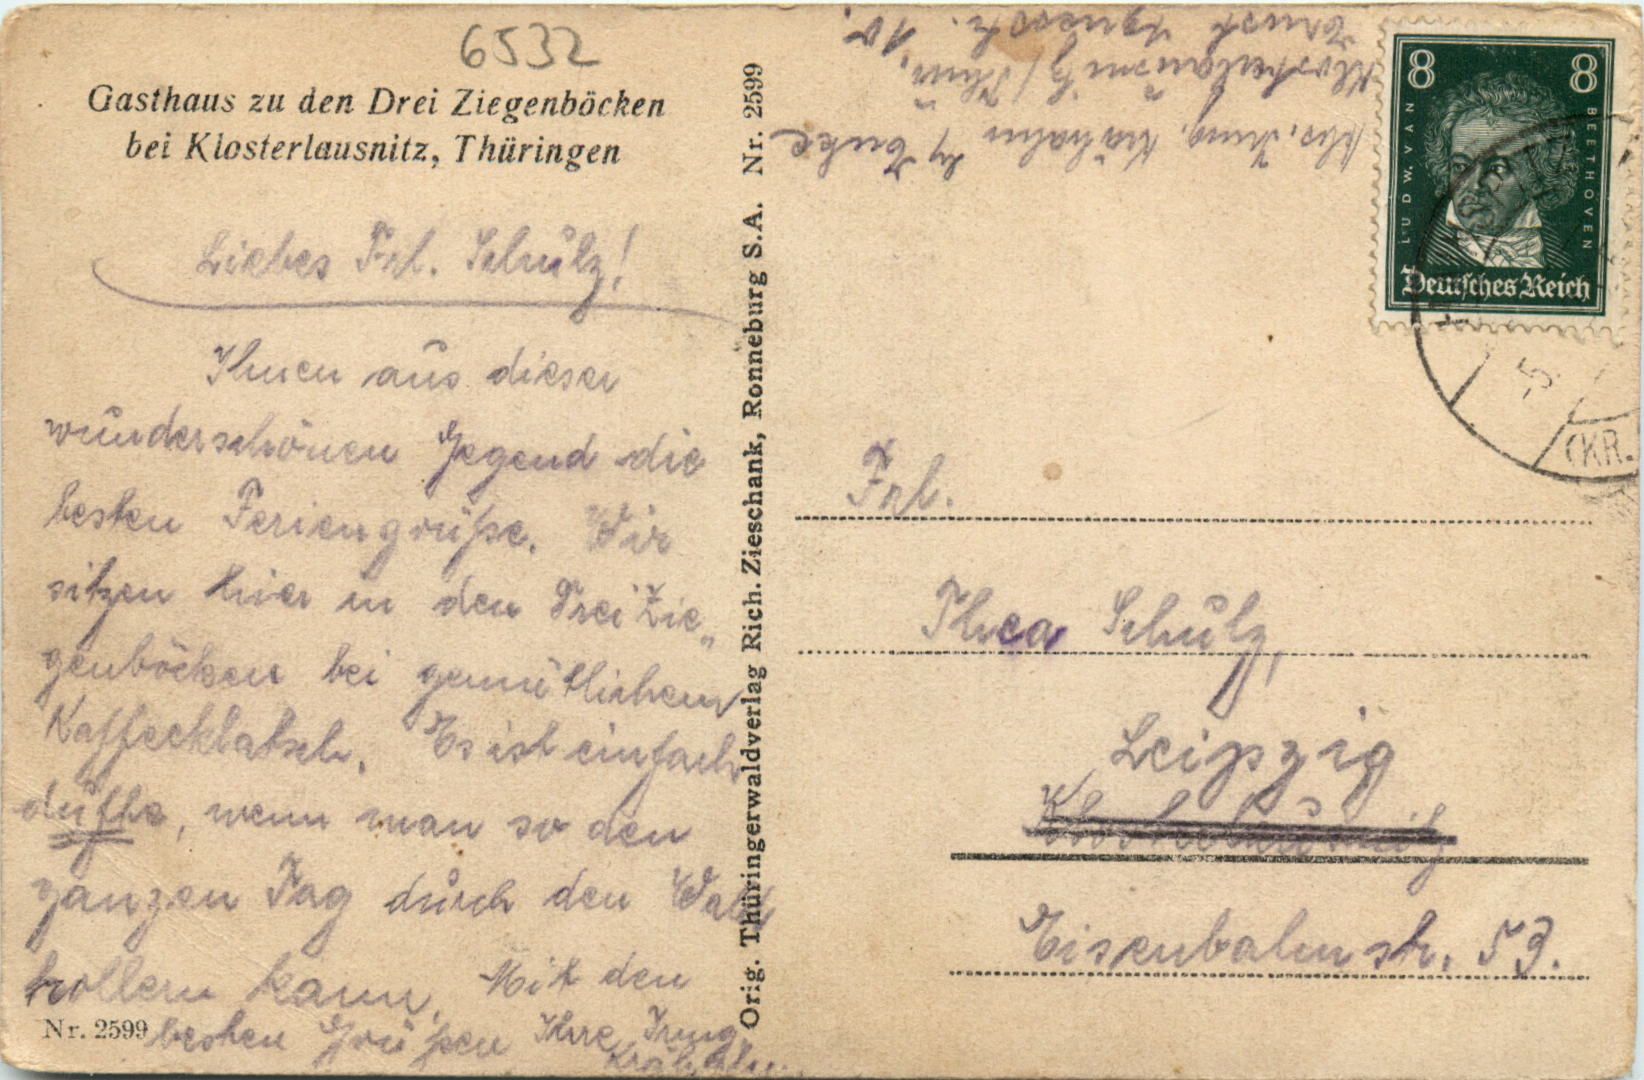 6532
Gasthaus zu den Drei Ziegenböcken
bei Klosterlausnitz, Thüringen
Liebes Frl. Schulz!
Ihnen aus dieser
wunderschönen Gegend die
besten Feriengrüße. Wir
sitzen hier in den Drei Zie„
genböcken bei gemütlichem
Kaffeeklatsch. Es ist einfach
dufte, wenn man so den
ganzen Tag durch den Wald
trollern kann. Mit den
besten Grüßen Ihre Irmg.
Nr. 2599
Orig. Thüringerwaldverlag Rich. Zieschank, Ronneburg S.A. Nr. 2599
Abs. Irmg.
Klosterlausnitz/Thür.
Ernst 10.
8 8
LUDW. VAN BEETHOVEN
Deutsches Reich
5.
(KR.
Frl.
Thea Schulz,
Leipzig
Klosterlausnitz
Eisenbahnstr. 53.